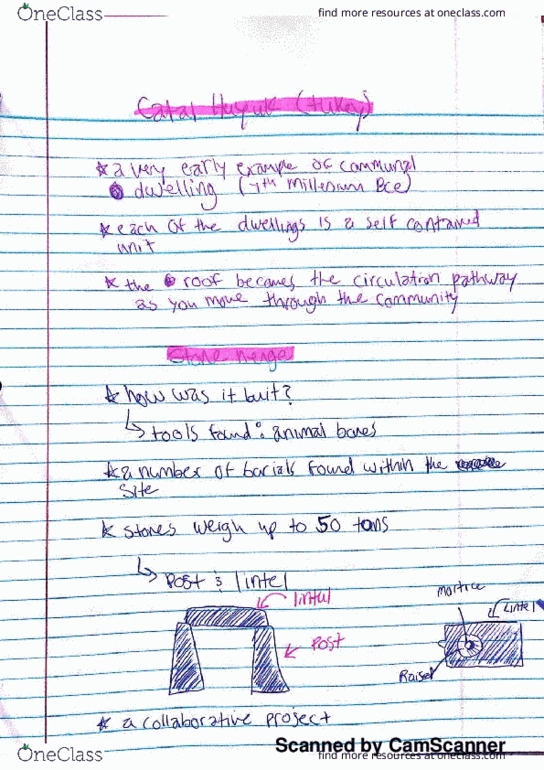 OneClass
find more resources at oneclass.com
Catal Huyuk (tukey)
* a very early example of communal
dwelling (7th millenium Bce)
* each of the dwellings is a self contained
unit
* the roof becomes the circulation pathway
as you move through the community
Stone henge
* how was it buit?
↳ tools found: animal bones
* a number of burials found within the
site
* stones weigh up to 50 tons
↳ Post & lintel
lintel
Post
mortice
Lintel
Raised
* a collaborative project
Scanned by CamScanner
OneClass
find more resources at oneclass.com